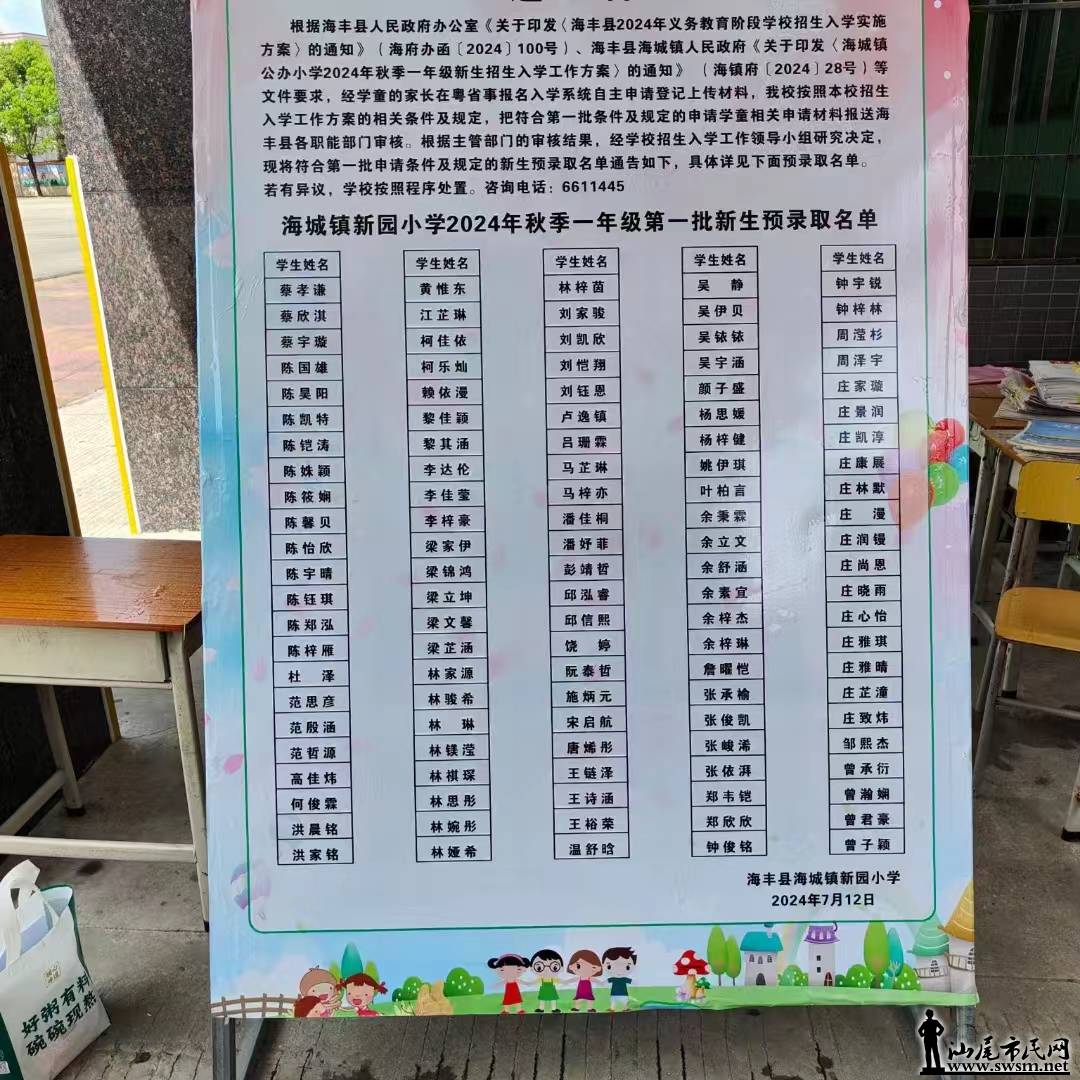 根据海丰县人民政府办公室《关于印发〈海丰县2024年义务教育阶段学校招生入学实施
方案〉的通知》（海府办函〔2024〕100号）、海丰县海城镇人民政府《关于印发〈海城镇
公办小学2024年秋季一年级新生招生入学工作方案〉的通知》（海镇府〔2024〕28号）等
文件要求，经学童的家长在粤省事报名入学系统自主申请登记上传材料，我校按照本校招生
入学工作方案的相关条件及规定，把符合第一批条件及规定的申请学童相关申请材料报送海
丰县各职能部门审核。根据主管部门的审核结果，经学校招生入学工作领导小组研究决定，
现将符合第一批申请条件及规定的新生预录取名单通告如下，具体详见下面预录取名单。
若有异议，学校按照程序处置。咨询电话：6611445
海城镇新园小学2024年秋季一年级第一批新生预录取名单
学生姓名 学生姓名 学生姓名 学生姓名 学生姓名
蔡孝谦 黄惟东 林梓茵 吴静 钟宇锐
蔡欣淇 江芷琳 刘家骏 吴伊贝 钟梓林
蔡宇璇 柯佳依 刘凯欣 吴铱铱 周滢杉
陈国雄 柯乐灿 刘恺翔 吴宇涵 周泽宇
陈昊阳 赖依漫 刘钰恩 颜子盛 庄家璇
陈凯特 黎佳颖 卢逸镇 杨思媛 庄景润
陈铠涛 黎其涵 吕珊霖 杨梓健 庄凯淳
陈姝颖 李达伦 马芷琳 姚伊琪 庄康展
陈筱娴 李佳莹 马梓亦 叶柏言 庄林默
陈馨贝 李梓豪 潘佳桐 余秉霖 庄漫
陈怡欣 梁家伊 潘妤菲 余立文 庄润镘
陈宇晴 梁锦鸿 彭靖哲 余舒涵 庄尚恩
陈钰琪 梁立坤 邱泓睿 余素宜 庄晓雨
陈郑泓 梁文馨 邱信熙 余梓杰 庄心怡
陈梓雁 梁芷涵 饶婷 余梓琳 庄雅琪
杜泽 林家源 阮泰哲 詹曜恺 庄雅晴
范思彦 林骏希 施炳元 张承榆 庄芷潼
范殷涵 林琳 宋启航 张俊凯 庄致炜
范哲源 林镁滢 唐烯彤 张峻浠 邹熙杰
高佳炜 林祺琛 王链泽 张依湃 曾承衍
何俊霖 林思彤 王诗涵 郑韦铠 曾瀚娴
洪晨铭 林婉彤 王裕荣 郑欣欣 曾君豪
洪家铭 林娅希 温舒晗 钟俊铭 曾子颖
海丰县海城镇新园小学
2024年7月12日
好粥有料
碗碗现熬
汕尾市民网
www.swsm.net